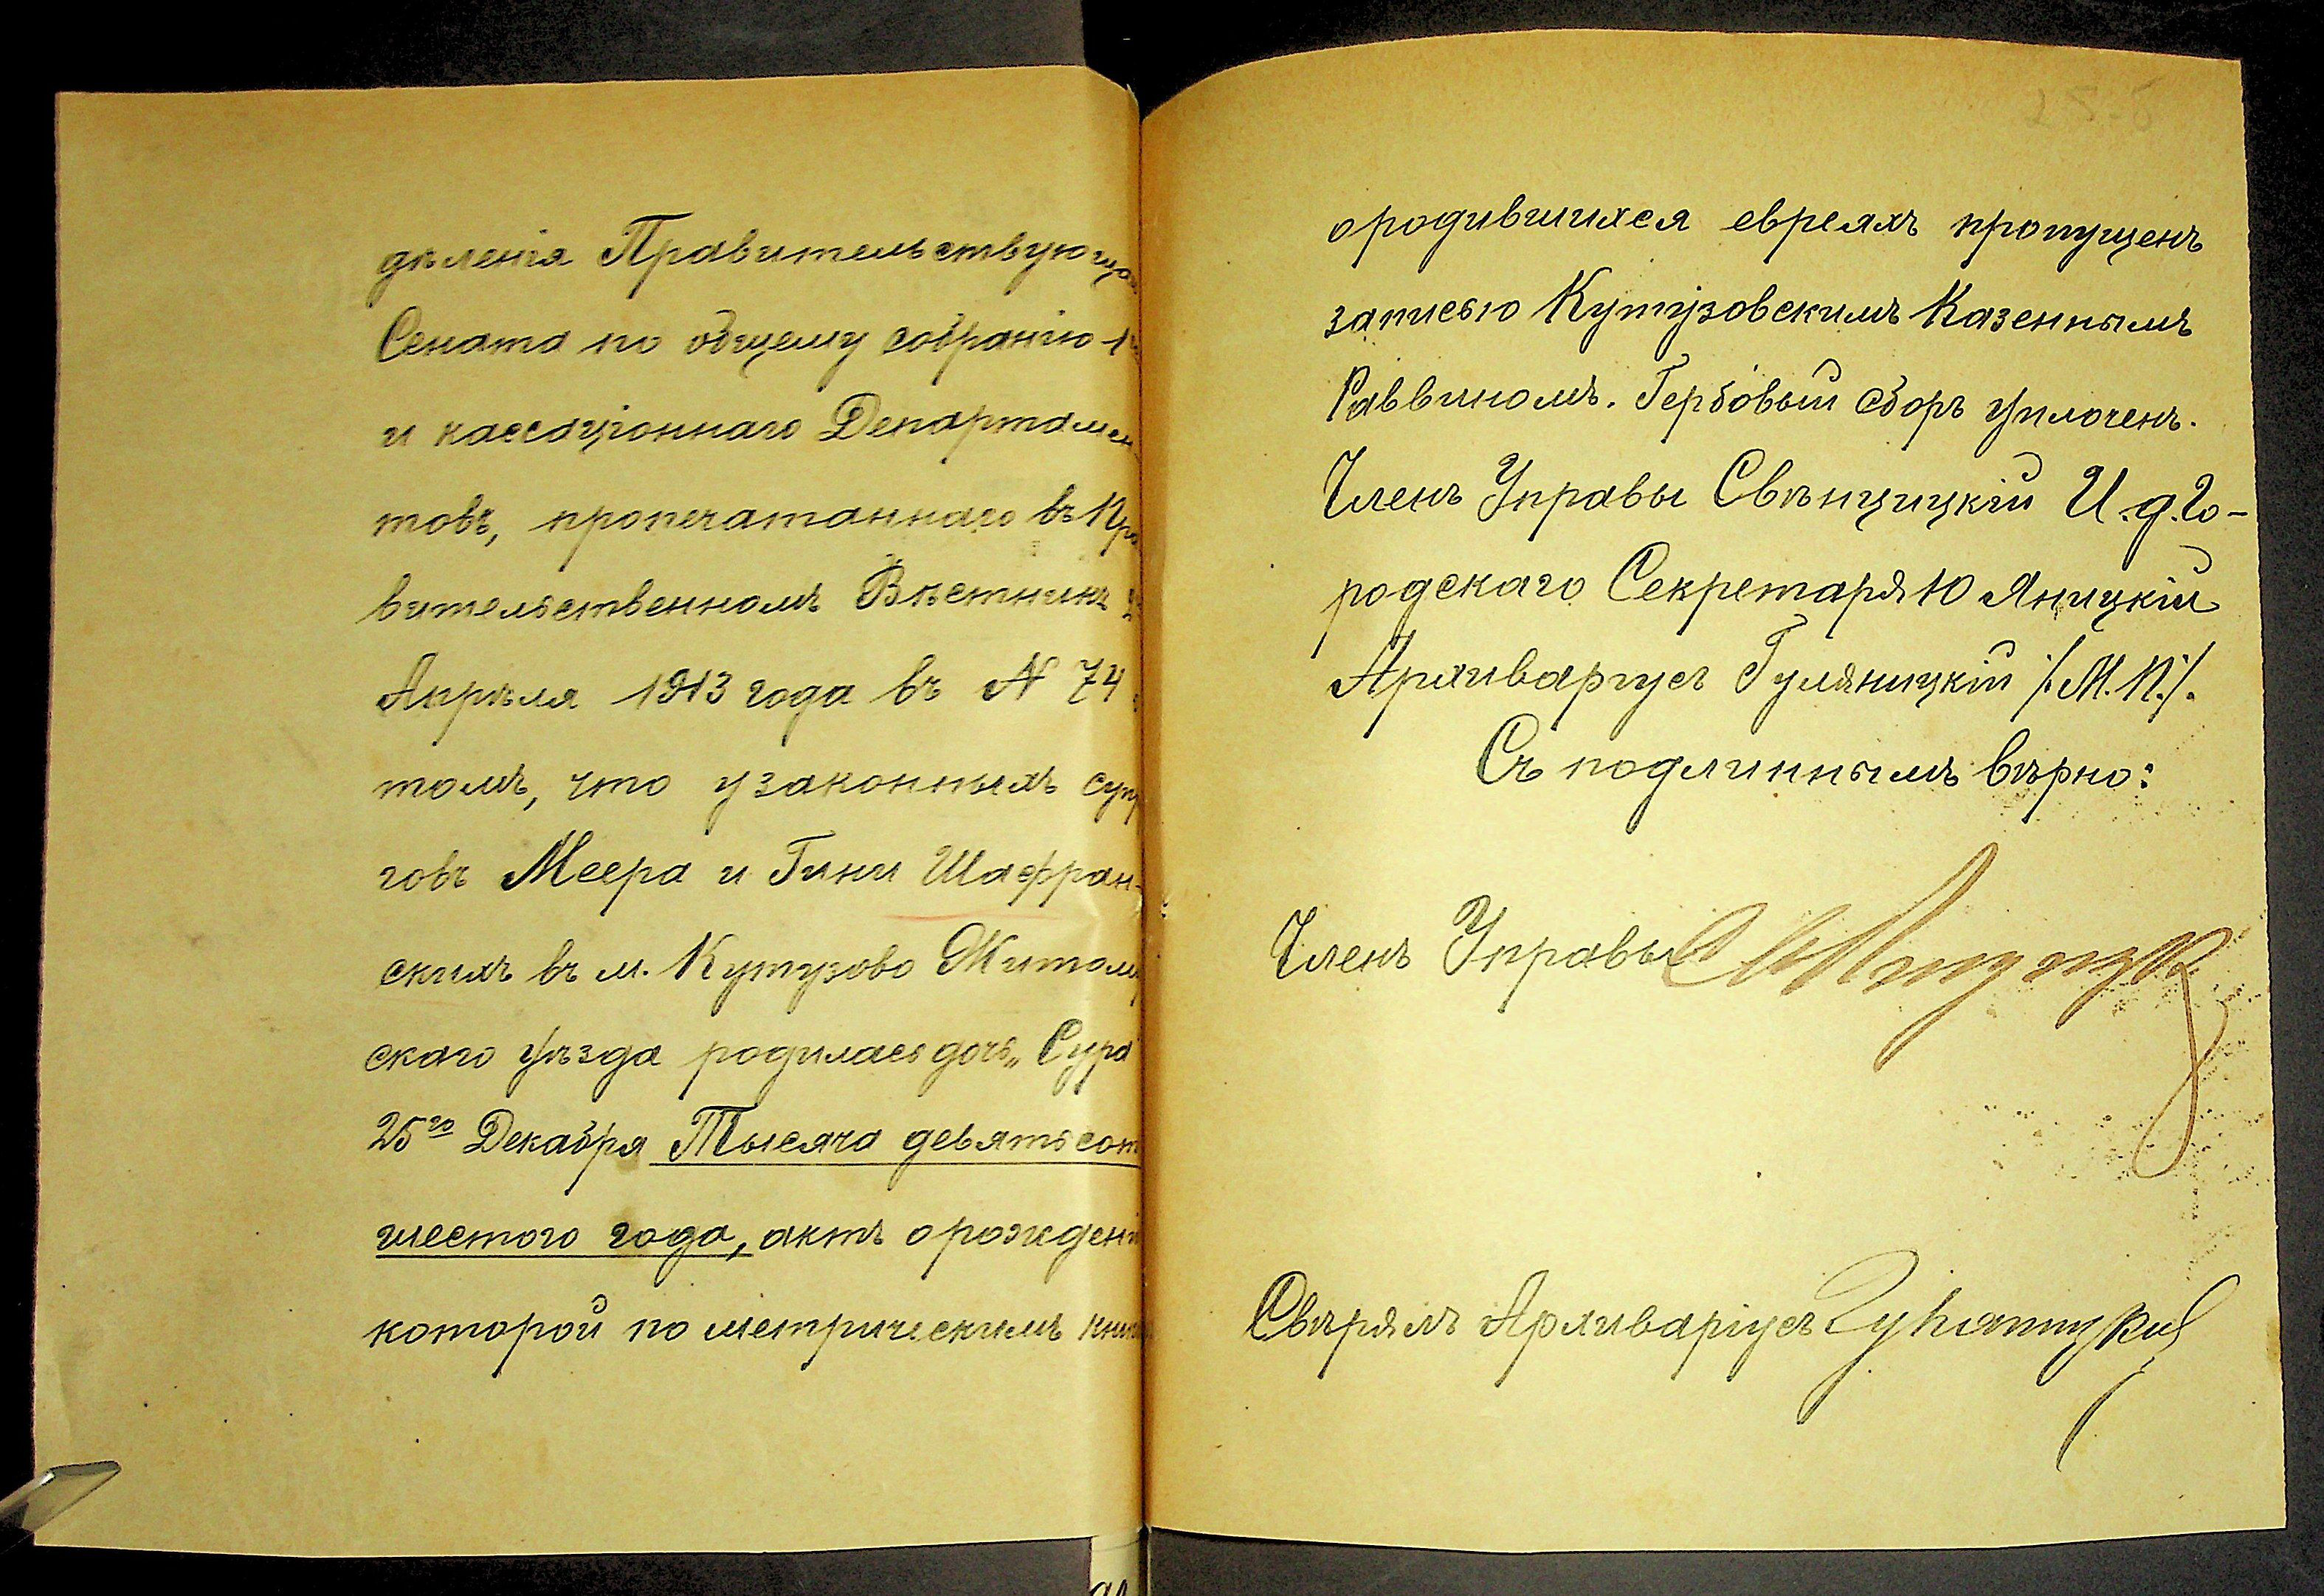 дѣленія Правительствующа
Сената по общему собранію 1
и кассаціоннаго Департамен
товъ, пропечатаннаго въ Пра
вительственномъ Вѣстникѣ
Апрѣля 1913 года въ № 74
томъ, что у законныхъ суп
говъ Меера и Гини Шафран-
скихъ въ м. Кутузово Житом
скаго уѣзда родилась дочь „Сура
25го Декабря Тысяча девятьсот
шестого года, актъ о рожденi
которой по метрическимъ кни
25-б
о родившихся евреяхъ пропущенъ
записью Кутузовскимъ Казеннымъ
Раввиномъ. Гербовый сборъ уплоченъ.
Членъ Управы Свѣнцицкій И. д. Го-
родскаго Секретаря Ю Яницкій
Архиваріусъ Гуляницкій /.М.П./.
Съ подлиннымъ вѣрно:
Членъ Управы
Свѣрялъ Архиваріусъ Гуляницкій